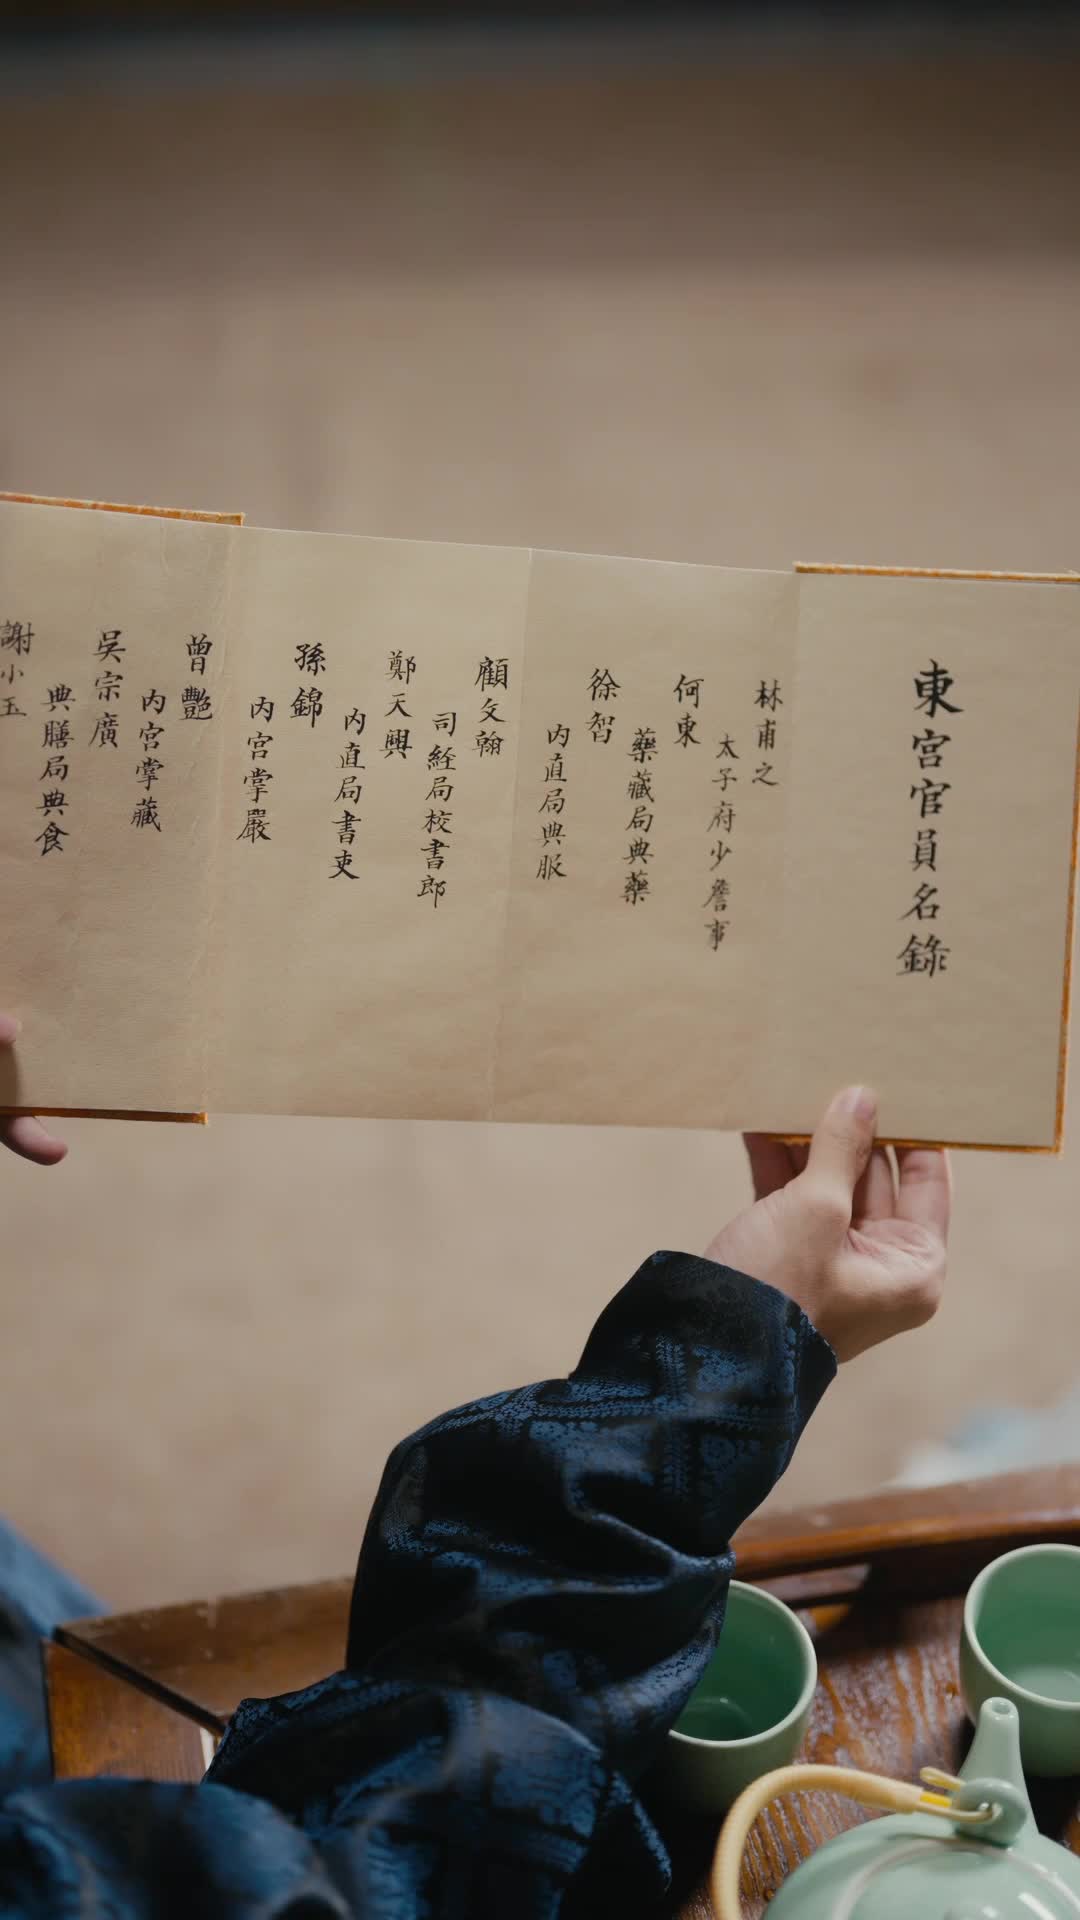 東宮官員名錄
林甫之
太子府少詹事
何東
藥藏局典藥
徐智
内直局典服
顧文翰
司経局校書郎
鄭天興
内直局書吏
孫錦
内宮掌嚴
曾艷
内宮掌藏
吳宗廣
典膳局典食
謝小玉